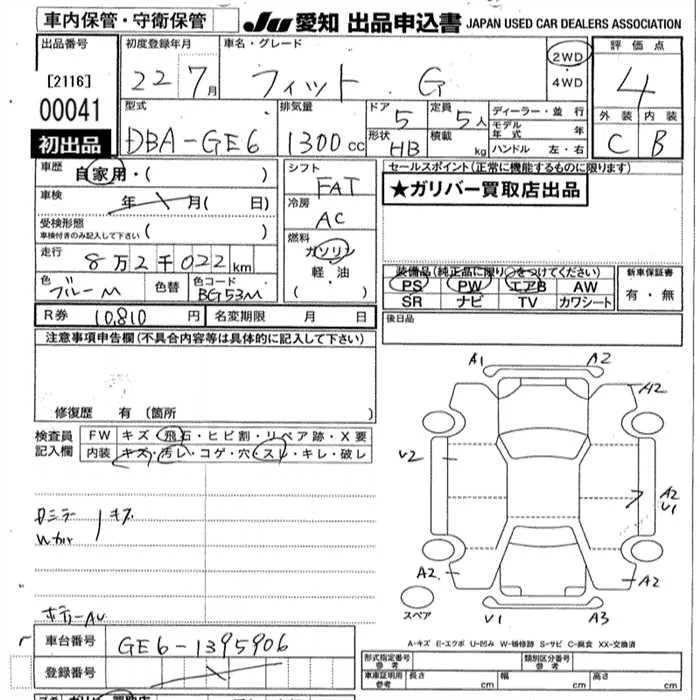 車内保管・守衛保管
JU 愛知 出品申込書 JAPAN USED CAR DEALERS ASSOCIATION
出品番号
[2116]
00041
初出品
初度登録年月
22 7月
車名・グレード
フィット G
2WD
4WD
評価点
4
外装 内装
C B
型式
DBA-GE6
排気量
1300cc
ドア
5
形状
HB
定員
5人
積載
kg
ディーラー・並行
モデル年式 年
ハンドル 左・右
車歴
自家用・( )
車検
年 月( 日)
受検形態
車検付きのみ記入して下さい ( )
走行
8万2千022km
色
ブルーM
色替
色コード
BG53M
シフト
FAT
冷房
AC
燃料
ガソリン
軽・油
( )
セールスポイント(正常に機能するものに限ります)
★ガリバー買取店出品
装備品(純正品に限り○をつけてください)
PS PW エアB AW
SR ナビ TV カワシート
新車保証書
有・無
R券 10,810円 名変期限 月 日
後日品
注意事項申告欄(不具合内容等は具体的に記入して下さい)
修復歴 有(箇所 )
検査員記入欄
FW キズ・飛石・ヒビ割・リペア跡・X要
内装 キズ・汚レ・コゲ・穴・スレ・キレ・破レ
キズ
A1 A2
A2
V2
A2
V1
A2 A2
スペア
V1 A3
A-キズ E-エクボ U-凹み W-補修跡 S-サビ C-腐食 XX-交換済
車台番号 GE6-1395906
登録番号
形式指定番号 参考
類別区分番号 参考
車庫証明用 参考 長さ cm 幅 cm 高さ cm